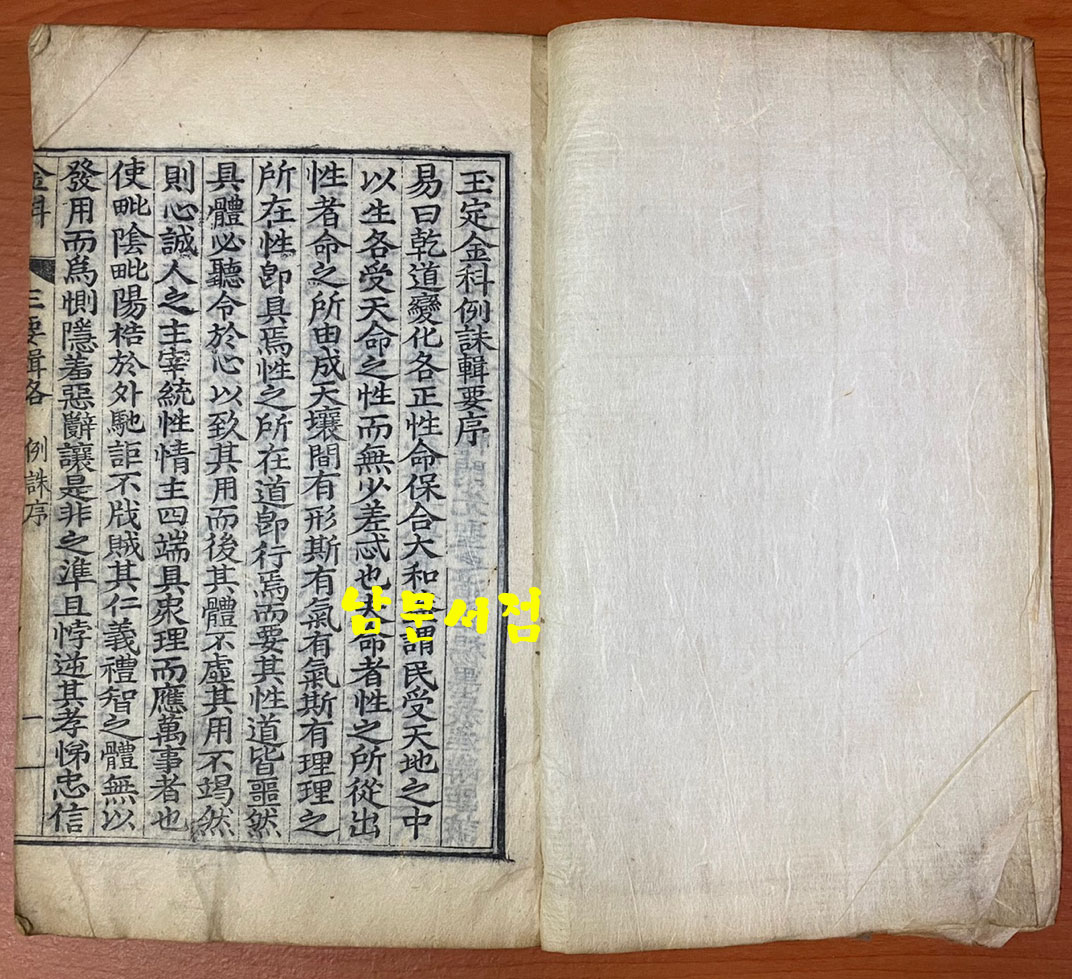 玉定金科例誅輯要序
易曰乾道變化各正性命保合大和謂民受天地之中
以生各受天命之性而無少差忒也夫命者性之所從出
性者命之所由成天壤間有形斯有氣有氣斯有理理之
所在性卽具焉性之所在道卽行焉而要其性道皆噩然
具體必聽令於心以致其用而後其體不虛其用不竭然
則心誠人之主宰統性情主四端具衆理而應萬事者也
使毗陰毗陽梏於外馳詎不戕賊其仁義禮智之體無以
發用而爲惻隱羞惡辭讓是非之準且悖逆其孝悌忠信
金科 三要輯畧 例誅序 一
남문서점